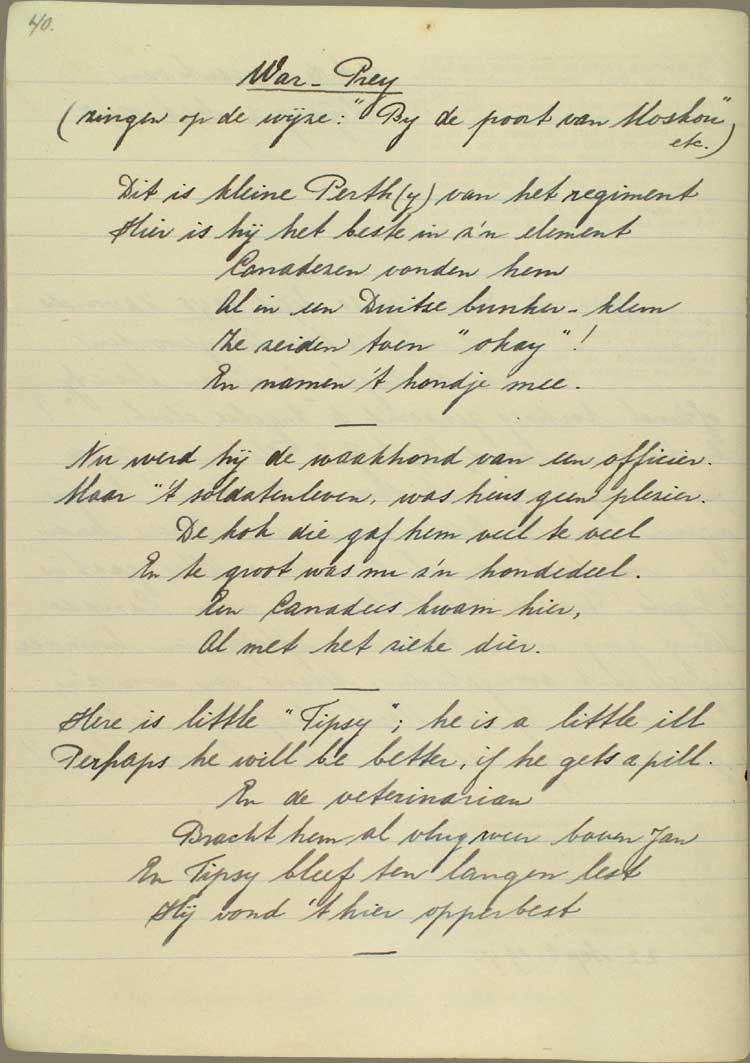 40.
War - Prey
(zingen op de wijze: "By de poort van Moskou"
etc.)
Dit is kleine Perth(y) van het regiment
Hier is hij het beste in z'n element
Canadezen vonden hem
Al in een Duitse bunker - klem
Ze zeiden toen "okay"!
En namen 't hondje mee.
Nu werd hij de waakhond van een officier.
Maar "'t soldatenleven, was heus geen plezier.
De kok die gaf hem veel te veel
En te groot was nu z'n hondedeel.
Een Canadees kwam hier,
Al met het zieke dier.
Here is little "Tipsy"; he is a little ill
Perhaps he will be better, if he gets a pill.
En de veterinarian
Bracht hem al vlug weer boven Jan
En Tipsy bleef ten langen lest
Hij vond 't hier opperbest